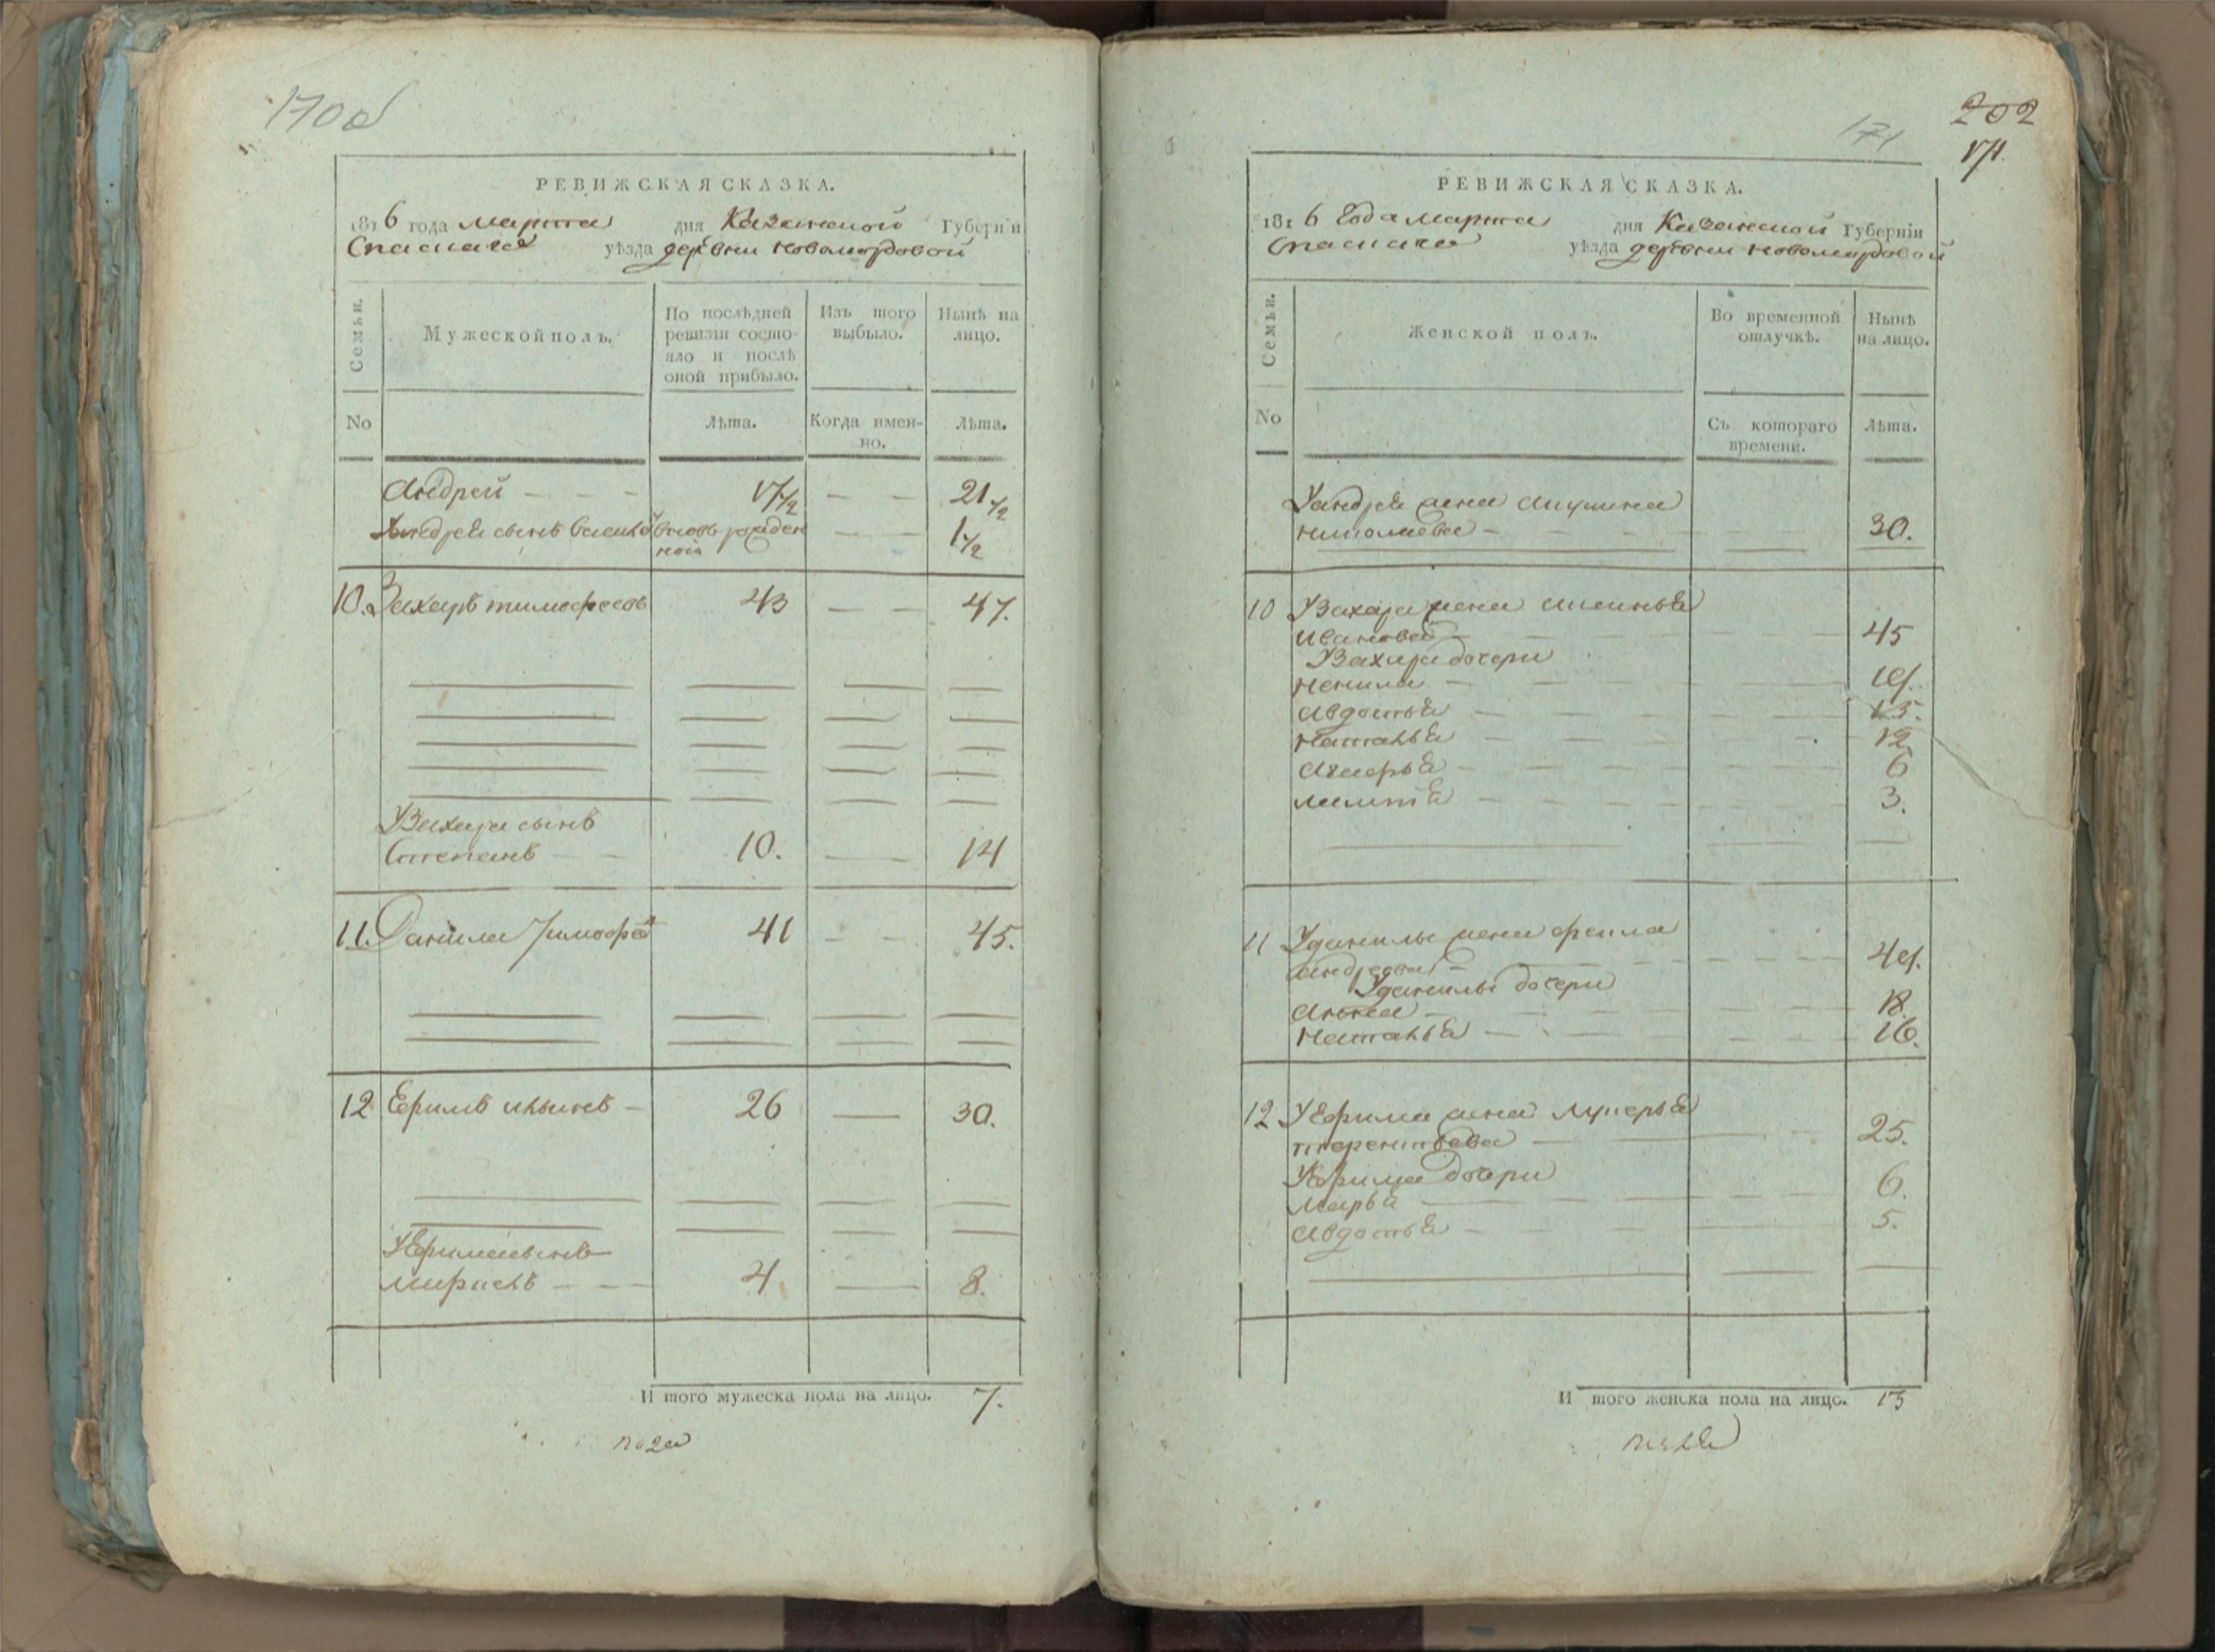 170 об
РЕВИЖСКАЯ СКАЗКА.
1816 года марта дня Казанской Губерніи
Спаскаго уѣзда деревни новомордовой
Семьи.
Мужеской полъ.
По послѣдней ревизіи состояло и послѣ оной прибыло.
Изъ того выбыло.
Нынѣ на лицо.
No
Лѣта.
Когда именно.
Лѣта.
Андрей - - - 17 1/2 — — 21 1/2
Андрея сынъ вновь рожден — — 1 1/2
ной
10. Захаръ тимофеевъ 43 — — 47.
У Захара сынъ
Степанъ — — 10. — 14
11. Данила Тимофее 41 — — 45.
12 Ефимъ ильинъ — 26 — 30.
У Ефима сынъ
— — 4 — 8.
И того мужеска пола на лицо. 7.
202
171
171.
РЕВИЖСКАЯ СКАЗКА.
1816 Года марта дня Казанской Губерніи
Спаскаго уѣзда деревни новомордовой
Семьи.
Женской полъ.
Во временной отлучкѣ.
Нынѣ на лицо.
No
Съ котораго времени.
Лѣта.
У андрея жена акулина
николаева — 30.
10 У Захара жена
Иванова — 45
У Захара дочери
ненила — 19.
авдотья — 15.
наталья — 12
— 6
— 3.
11 У данилы жена фекла
андреева — 49.
У данилы дочери
анна — 18.
наталья — 16.
12 У Ефима жена лукерья
терентьева — 25.
У Ефима дочери
марья — 6.
авдотья — 5.
И того женска пола на лицо. 13